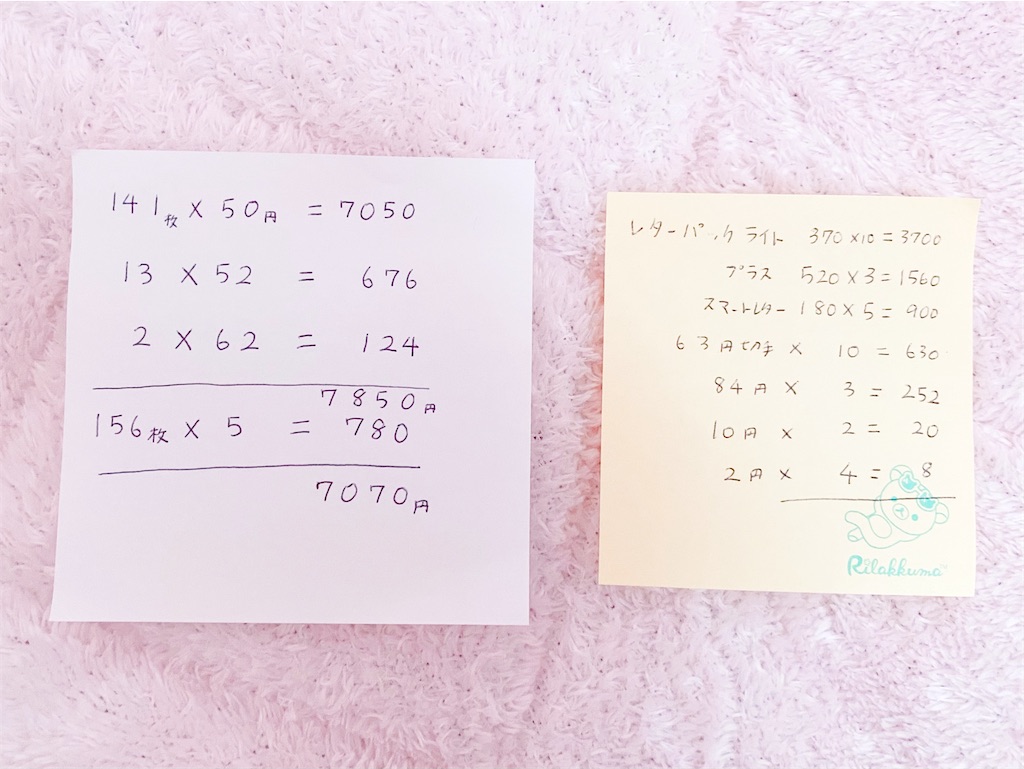 141枚 × 50円 = 7050
13 × 52 = 676
2 × 62 = 124
7850円
156枚 × 5 = 780
7070円
レターパックライト 370×10=3700
プラス 520×3=1560
スマートレター 180×5=900
63円切手 × 10 = 630
84円 × 3 = 252
10円 × 2 = 20
2円 × 4 = 8
Rilakkuma